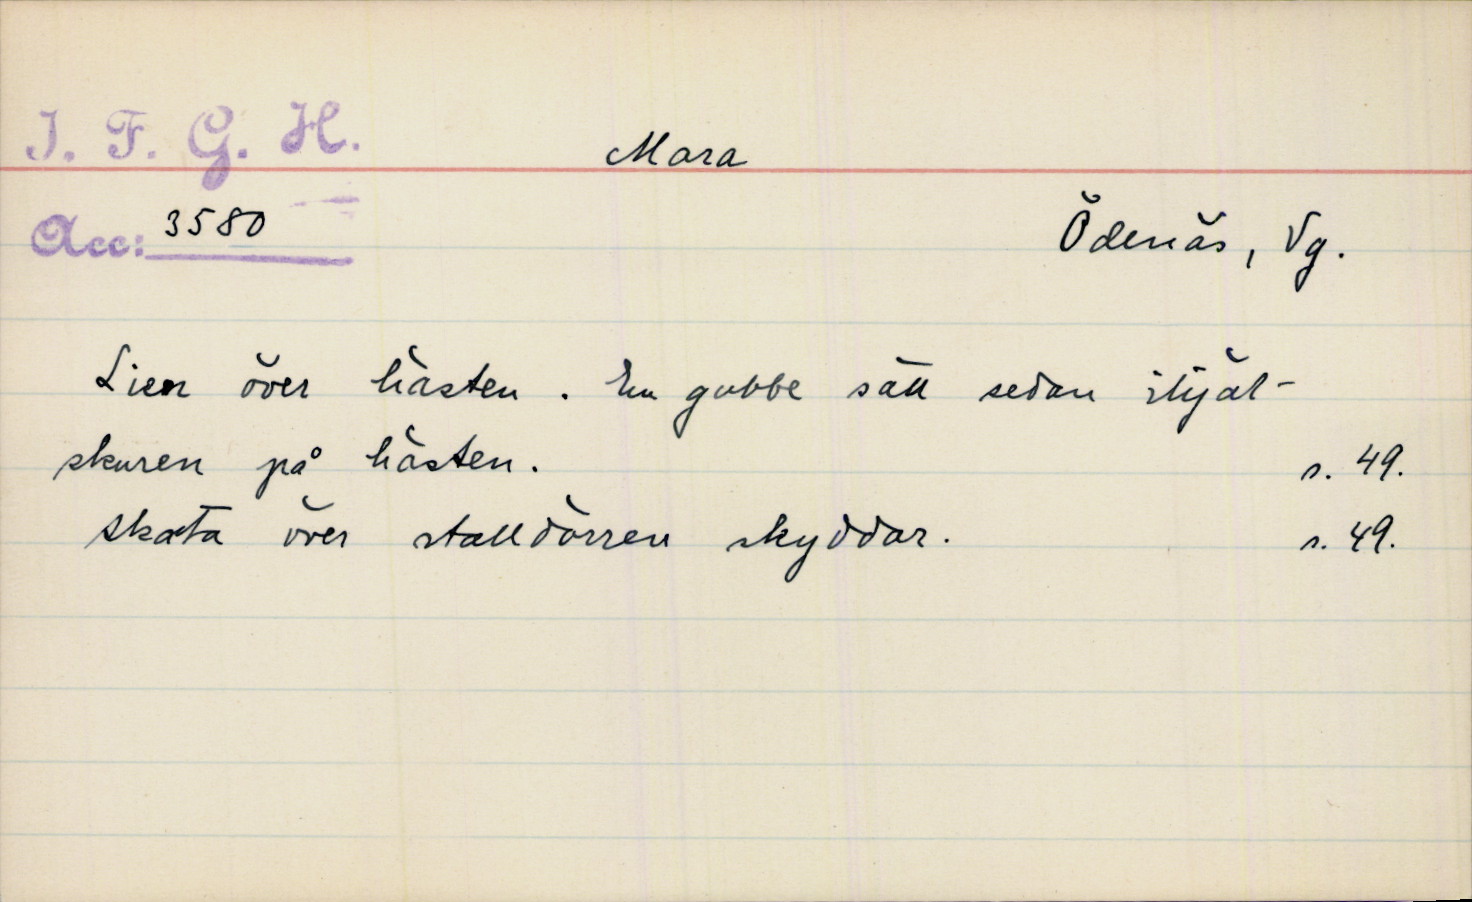 I. F. G. H.
Mara
Acc: 3580
Ödenäs, Vg.
Lien över hästen. En gubbe satt sedan ihjäl-
skuren på hästen. s. 49.
Skata över stalldörren skyddar. s. 49.